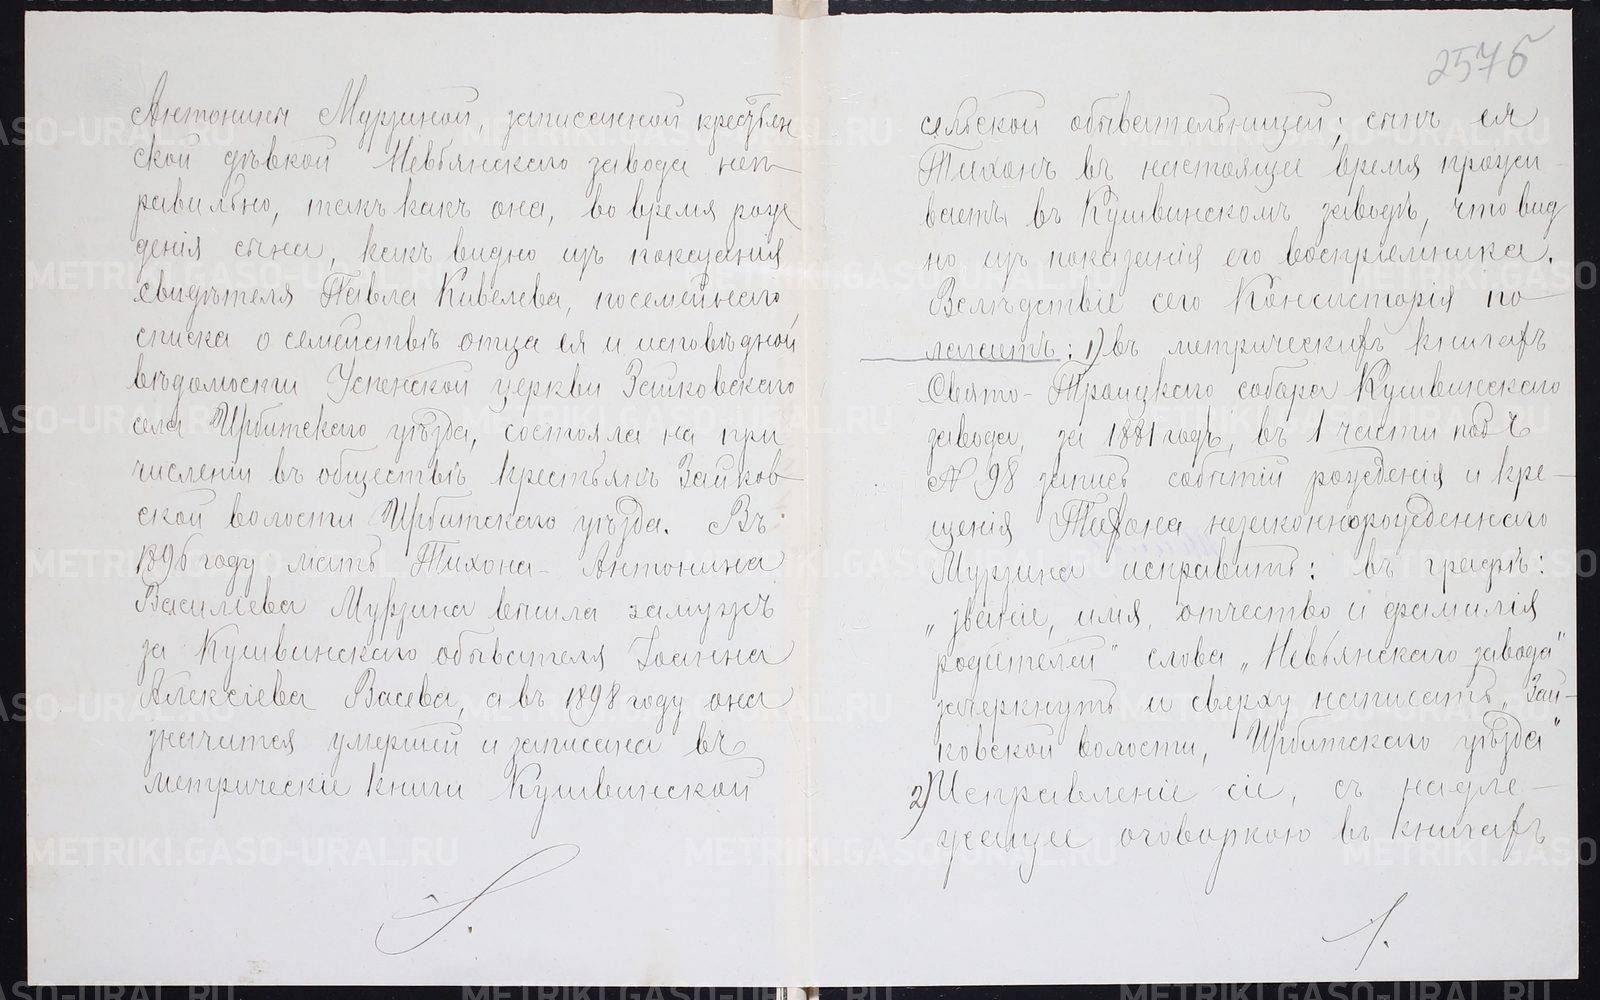 Антонины Мурзиной, записанной крестьян
ской дѣвкой Невьянскаго завода неп
равильно, такъ какъ она, во время рож
денія сына, какъ видно изъ показанія
свидѣтеля Павла Кивелева, посемейнаго
списка о семействѣ отца ея и исповѣдной
вѣдомости Успенской церкви Зайковскаго
села Ирбитскаго уѣзда, состояла на при
численіи въ обществѣ крестьянъ Зайков
ской волости Ирбитскаго уѣзда. Въ
1896 году мать Тихона - Антонина
Васильева Мурзина вышла замужъ
за Кушвинскаго обывателя Іоанна
Алексіева Васева, а въ 1898 году она
значится умершей и записана въ
метрическіе книги Кушвинской
257б
сельской обывательницей; сынъ ея
Тихонъ въ настоящее время прожи
ваетъ въ Кушвинскомъ заводѣ, что вид
но изъ показанія его воспріемника.
Вслѣдствіе сего Консисторія по
лагаетъ: 1) въ метрическихъ книгахъ
Свято-Троицкаго собора Кушвинскаго
завода, за 1881 годъ, въ 1 части подъ
№ 98 запись событій рожденія и кре-
щенія Тихона незаконнорожденнаго
Мурзина исправить: въ графѣ:
„званіе, имя, отчество и фамилія
родителей" слова „Невьянскаго завода"
зачеркнуть и сверху написать „Зай-
ковской волости, Ирбитскаго уѣзда"
2) Исправленіе сіе, съ надле-
жащее оговоркою въ книгахъ